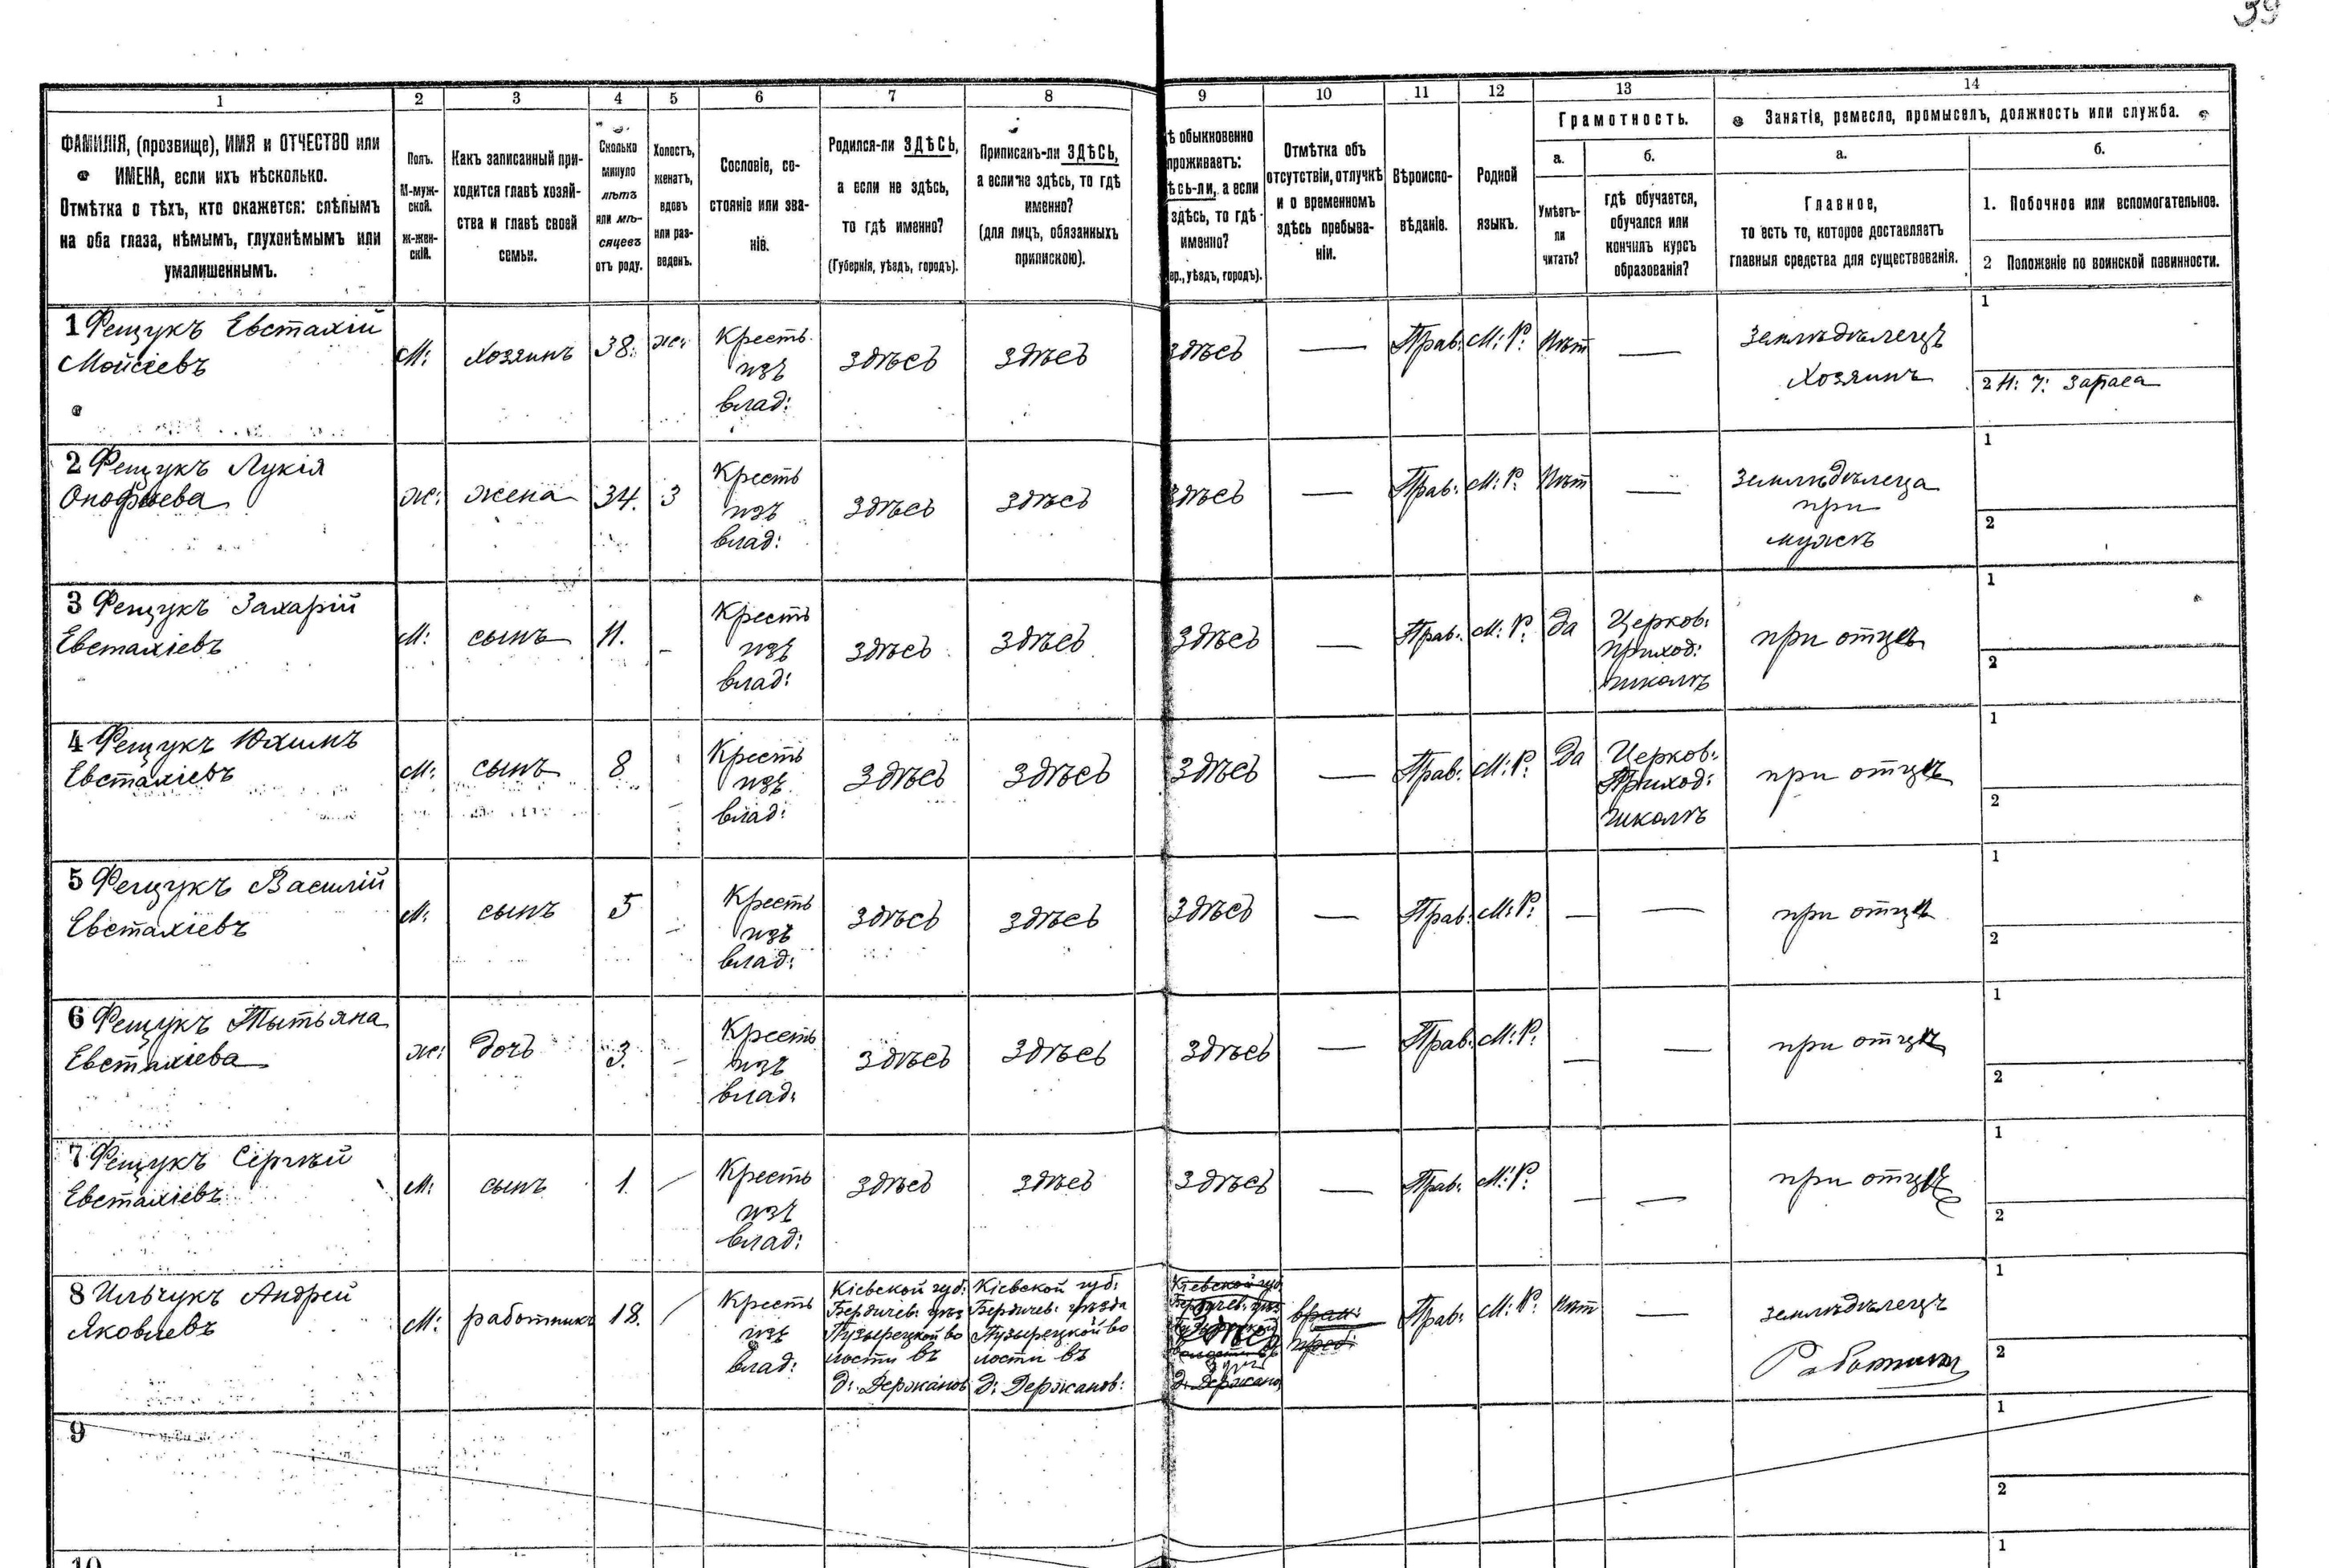 39
1
2
3
4
5
6
7
8
9
10
11
12
13
14
ФАМИЛІЯ, (прозвище), ИМЯ и ОТЧЕСТВО или
ИМЕНА, если ихъ нѣсколько.
Отмѣтка о тѣхъ, кто окажется: слѣпымъ
на оба глаза, нѣмымъ, глухонѣмымъ или
умалишеннымъ.
Полъ.
М-муж-
ской.
Ж-жен-
скій.
Какъ записанный при-
ходится главѣ хозяй-
ства и главѣ своей
семьи.
Сколько
минуло
лѣтъ
или мѣ-
сяцевъ
отъ роду.
Холостъ,
женатъ,
вдовъ
или раз-
веденъ.
Сословіе, со-
стояніе или зва-
ніе.
Родился-ли ЗДѢСЬ,
а если не здѣсь,
то гдѣ именно?
(Губернія, уѣздъ, городъ).
Приписанъ-ли ЗДѢСЬ,
а если не здѣсь, то гдѣ
именно?
(для лицъ, обязанныхъ
припискою).
ѣ обыкновенно
проживаетъ:
ѣсь-ли, а если
здѣсь, то гдѣ
именно?
ер., уѣздъ, городъ).
Отмѣтка объ
отсутствіи, отлучкѣ
и о временномъ
здѣсь пребыва-
ніи.
Вѣроиспо-
вѣданіе.
Родной
языкъ.
Грамотность.
а.
Умѣетъ-
ли
читать?
б.
гдѣ обучается,
обучался или
кончилъ курсъ
образованія?
Занятіе, ремесло, промыселъ, должность или служба.
а.
Главное,
то есть то, которое доставляетъ
главныя средства для существованія.
б.
1. Побочное или вспомогательное.
2 Положеніе по воинской повинности.
1 Фещукъ Евстахій
Мойсіевъ
М:
хозяинъ
38.
же:
Кресть
изъ
влад:
здѣсь
здѣсь
здѣсь
—
Прав:
М: Р:
Нѣт
—
Земледѣлецъ
Хозяинъ
1
2 Н: Ч: Запаса
2 Фещукъ Лукія
Онофіева
ж:
жена
34.
З
Кресть
изъ
влад:
здѣсь
здѣсь
здѣсь
—
Прав:
М: Р:
Нѣт
—
Земледѣлеца
при
мужѣ
1
2
3 Фещукъ Захарій
Евстахіевъ
М:
сынъ
11.
-
Кресть
изъ
влад:
здѣсь
здѣсь
здѣсь
—
Прав:
М: Р:
Да
Церков:
Приход:
школѣ
при отцѣ
1
2
4 Фещукъ Юхимъ
Евстахіевъ
М:
сынъ
8
Кресть
изъ
влад:
здѣсь
здѣсь
здѣсь
—
Прав:
М: Р:
Да
Церков:
Приход:
школѣ
при отцѣ
1
2
5 Фещукъ Василій
Евстахіевъ
М:
сынъ
5
-
Кресть
изъ
влад:
здѣсь
здѣсь
здѣсь
—
Прав:
М: Р:
—
—
при отцѣ
1
2
6 Фещукъ Тытьяна
Евстахіева
ж:
дочь
3.
-
Кресть
изъ
влад:
здѣсь
здѣсь
здѣсь
—
Прав:
М: Р:
—
—
при отцѣ
1
2
7 Фещукъ Сергѣй
Евстахіевъ
М:
сынъ
1.
-
Кресть
изъ
влад:
здѣсь
здѣсь
здѣсь
—
Прав:
М: Р:
—
—
при отцѣ
1
2
8 Ильчукъ Андрей
Яковлевъ
М:
работникъ
18.
-
Кресть
изъ
влад:
Кіевской губ:
Бердичев: уѣз
Пузырецкой во
лости въ
д: Держанов
Кіевской губ:
Бердичев: уѣзда
Пузырецкой во
лости въ
д: Держанов:
Кіевской губ
Бердичев: уѣз
здѣсь
д: Держано
врем:
преб:
Прав:
М: Р:
Нѣт
—
земледѣлецъ
Работникъ
1
2
9
1
2
10
1